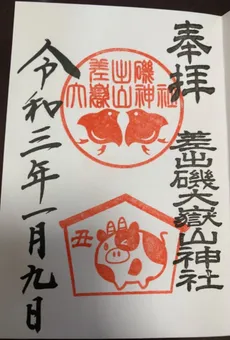 奉拝
差出磯大嶽山神社
差出磯
大嶽山神社
丑
令和三年一月九日